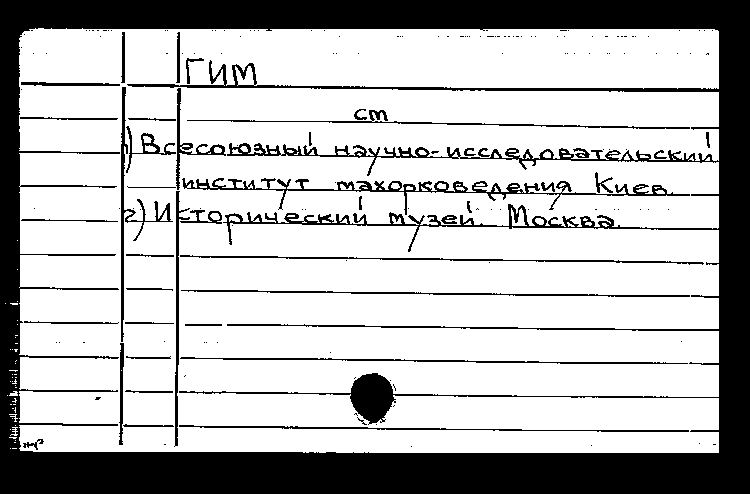 ГИМ
ст
1) Всесоюзный научно-исследовательский
институт махорковедения Киев.
2) Исторический музей. Москва.